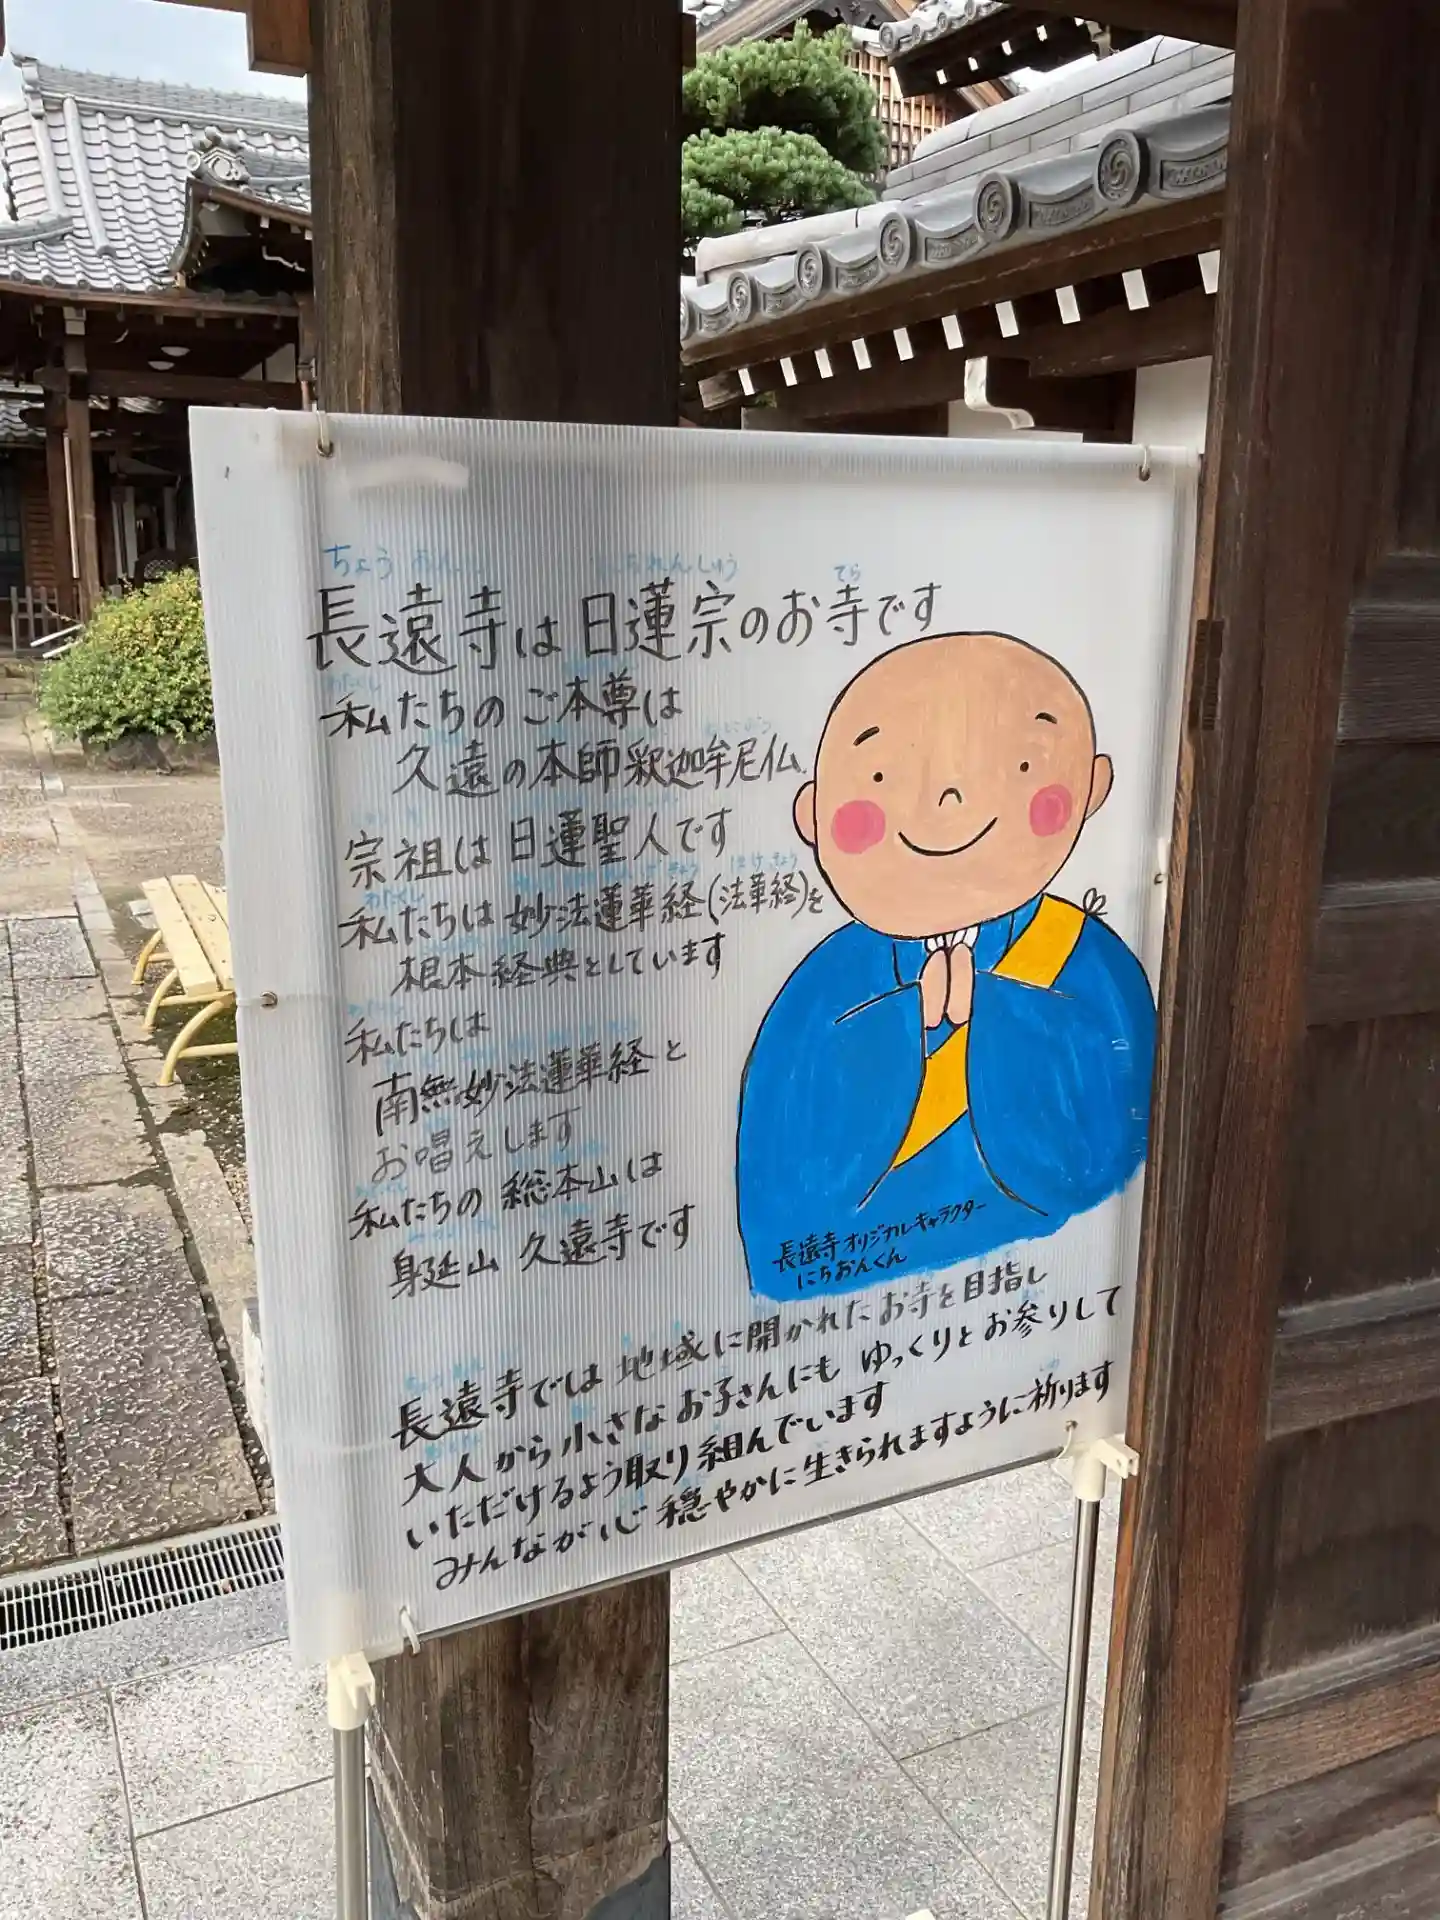 ちょう おん ちれんしゅう てら
長遠寺は日蓮宗のお寺です
わたくし
私たちのご本尊は
久遠の本師釈迦牟尼仏
宗祖は日蓮聖人です
わたくし きょう ほけきょう
私たちは妙法蓮華経(法華経)を
根本経典としています
私たちは
南無妙法蓮華経と
お唱えします
私たちの 総本山は
身延山 久遠寺です
長遠寺オリジナルキャラクター
にちおんくん
長遠寺では 地域に開かれたお寺を目指し
大人から小さなお子さんにも ゆっくりとお参りして
いただけるよう取り組んでいます
みんなが心穏やかに生きられますように祈ります